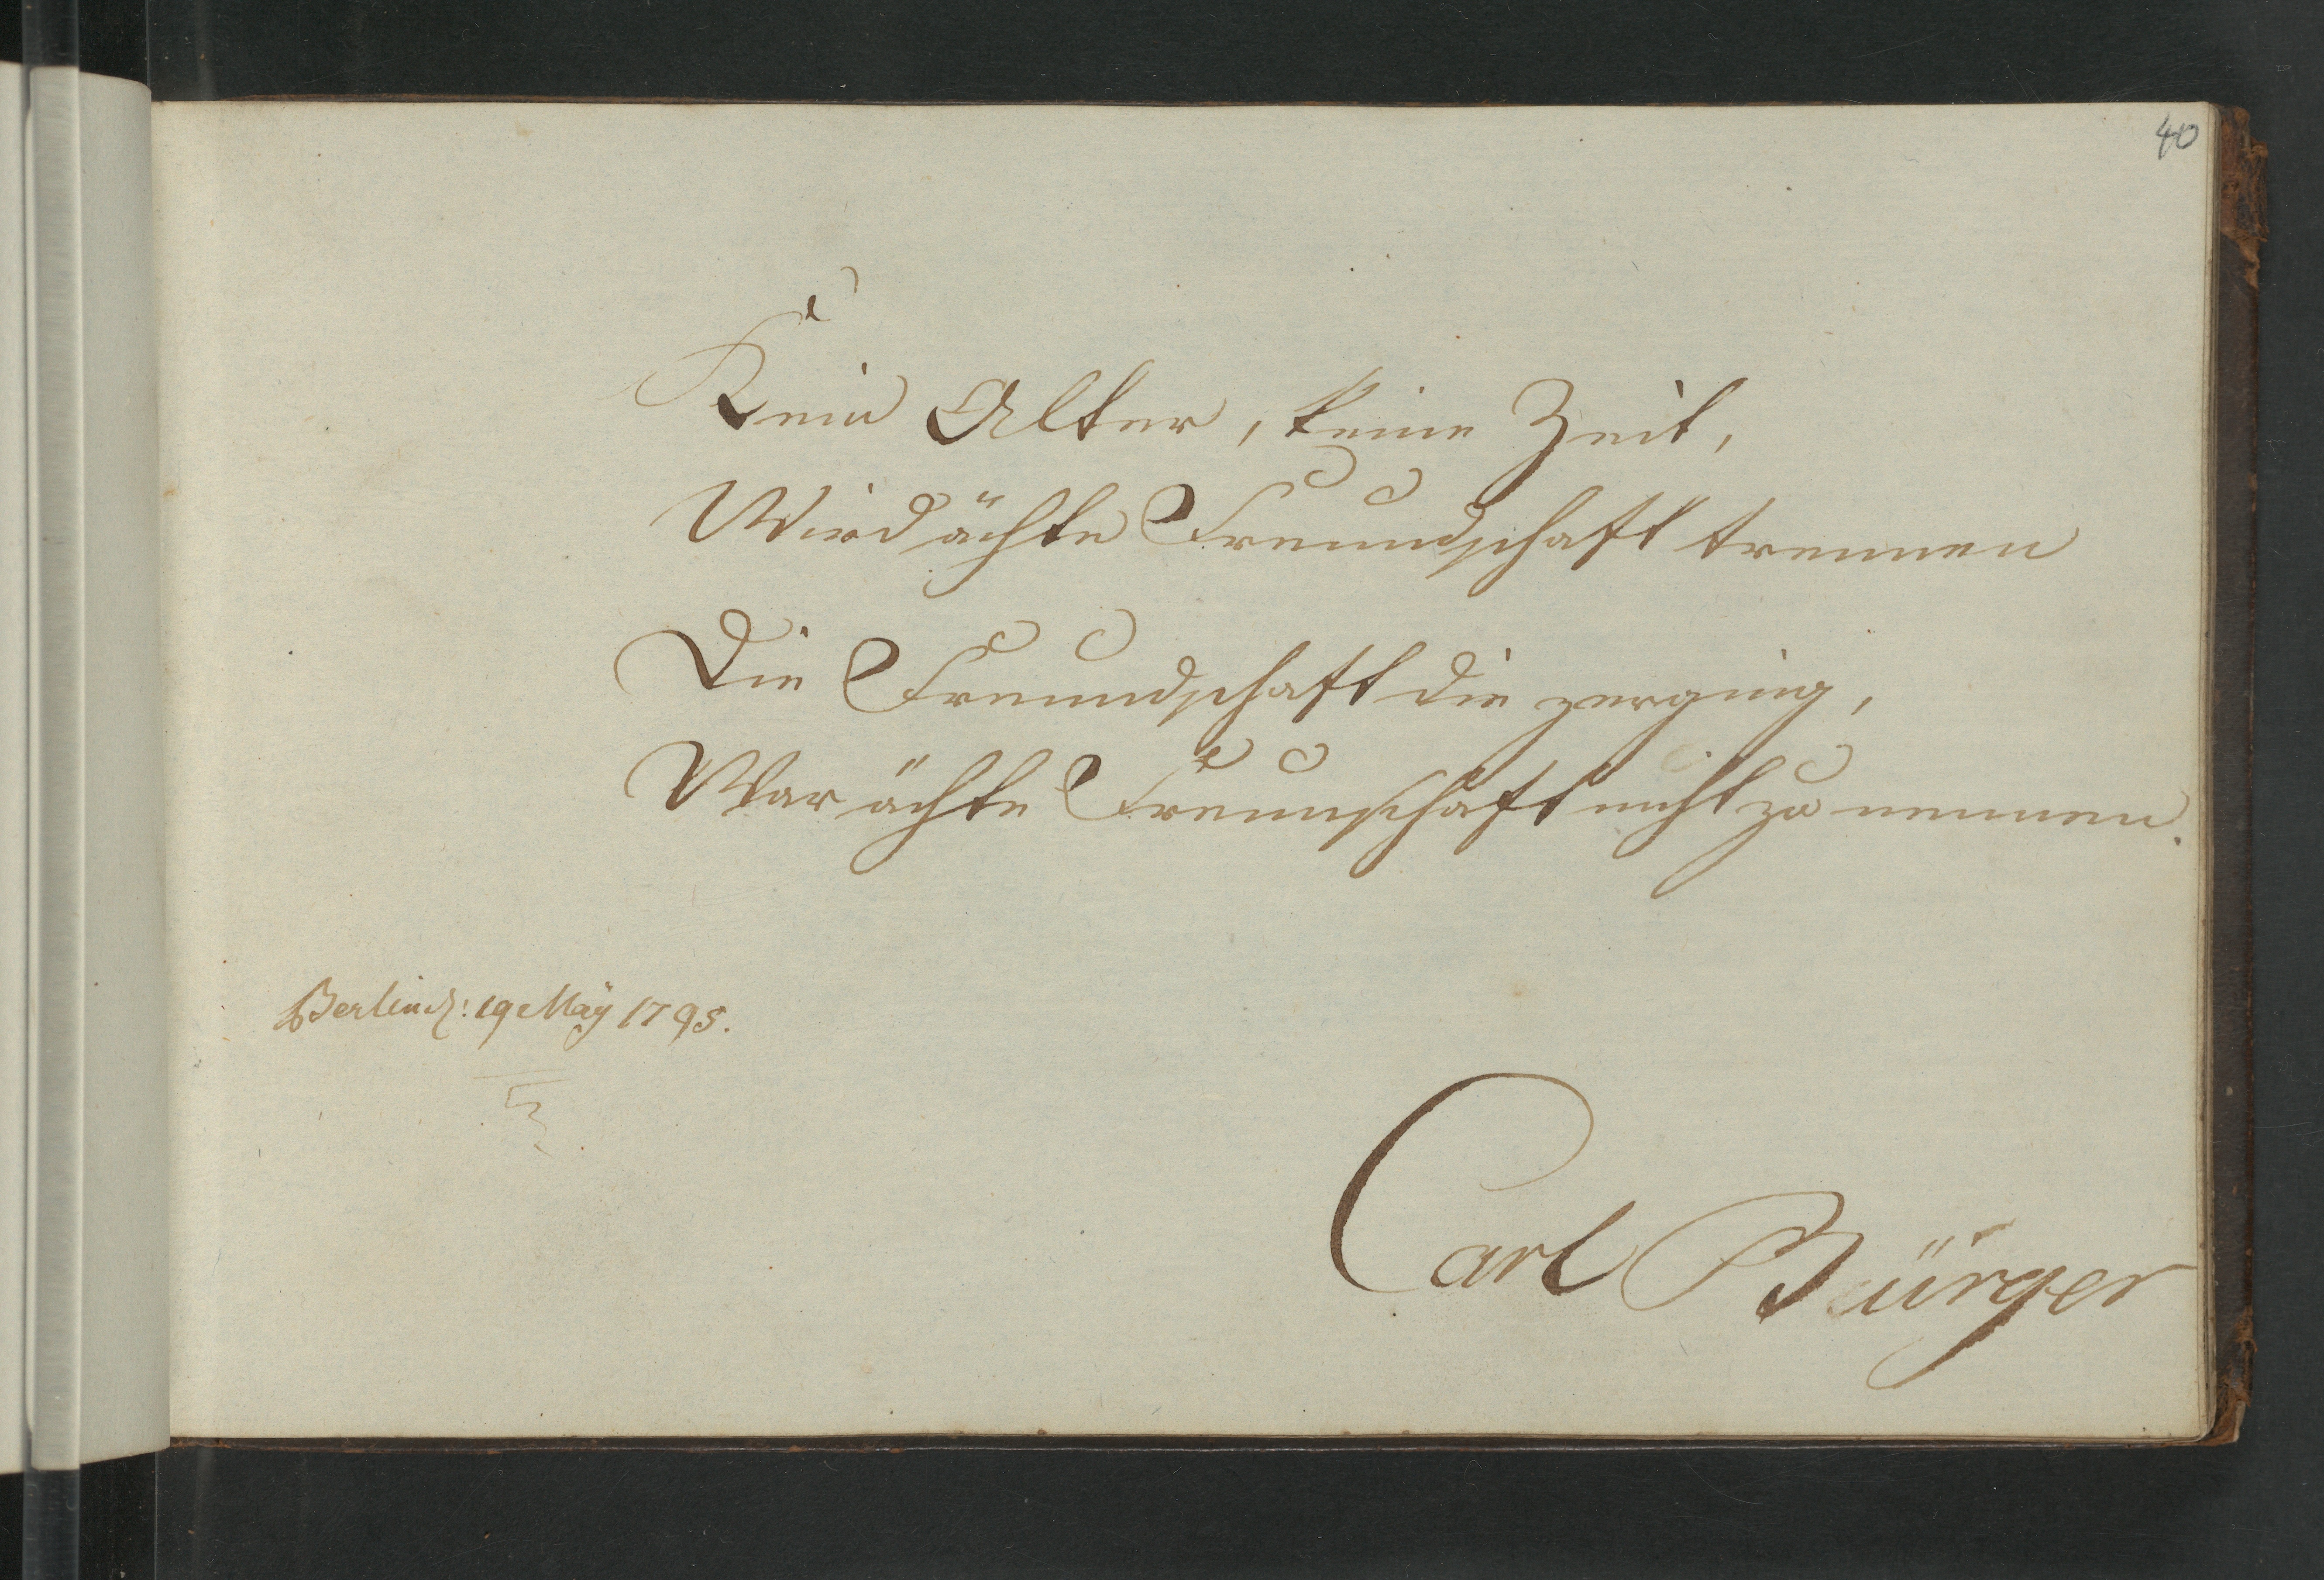 40
Kein Alter, keine Zeit,
Wird ächte Freundschaft trennen
Die Freundschaft die zerging,
War ächte Freunschaft nicht zu nennen.
Berlin d: 19 May 1795.
Carl Bürger